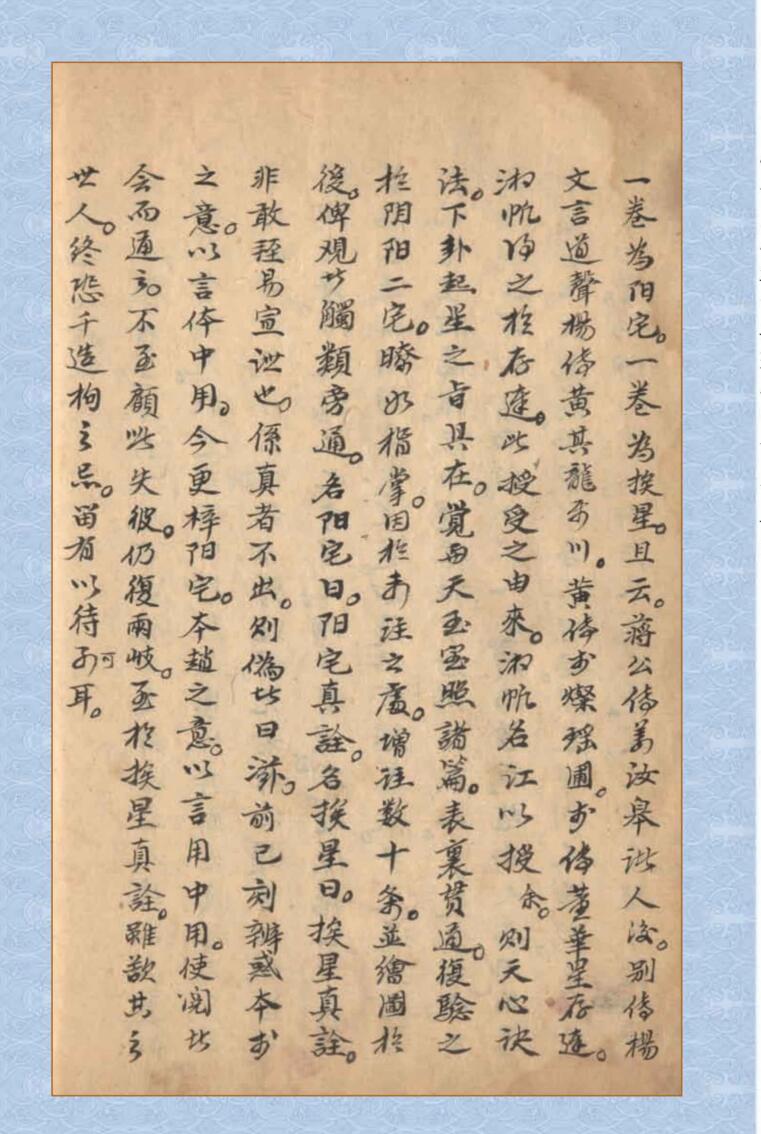 一卷為阳宅。一卷為挨星。且云。蔣公傳姜汝皋諸人後。别傳楊
文言道聲楊傳黄其龍雨川。黄傳于燦瑶圃。于傳董華星存蓮。
湘帆得之於存蓮。此授受之由來。湘帆名江以授余。则天心诀
法。下卦起星之旨具在。覚与天玉宝照諸篇。表裏貫通。復驗之
於阴阳二宅。瞭如指掌。因於未注之處。增注数十条。並繪圖於
後。俾观者觸類旁通。名阳宅曰。阳宅真詮。名挨星曰。挨星真詮。
非敢輕易宣泄也。係真者不出。则偽者日滋。前已刻辨惑本于
之意。以言体中用。今更梓阳宅。本趙之意。以言用中用。使阅者
会而通之。不至顧此失彼。仍復兩岐。至於挨星真詮。雖欲共之
世人。终恐干造物之忌。留有以待可耳。